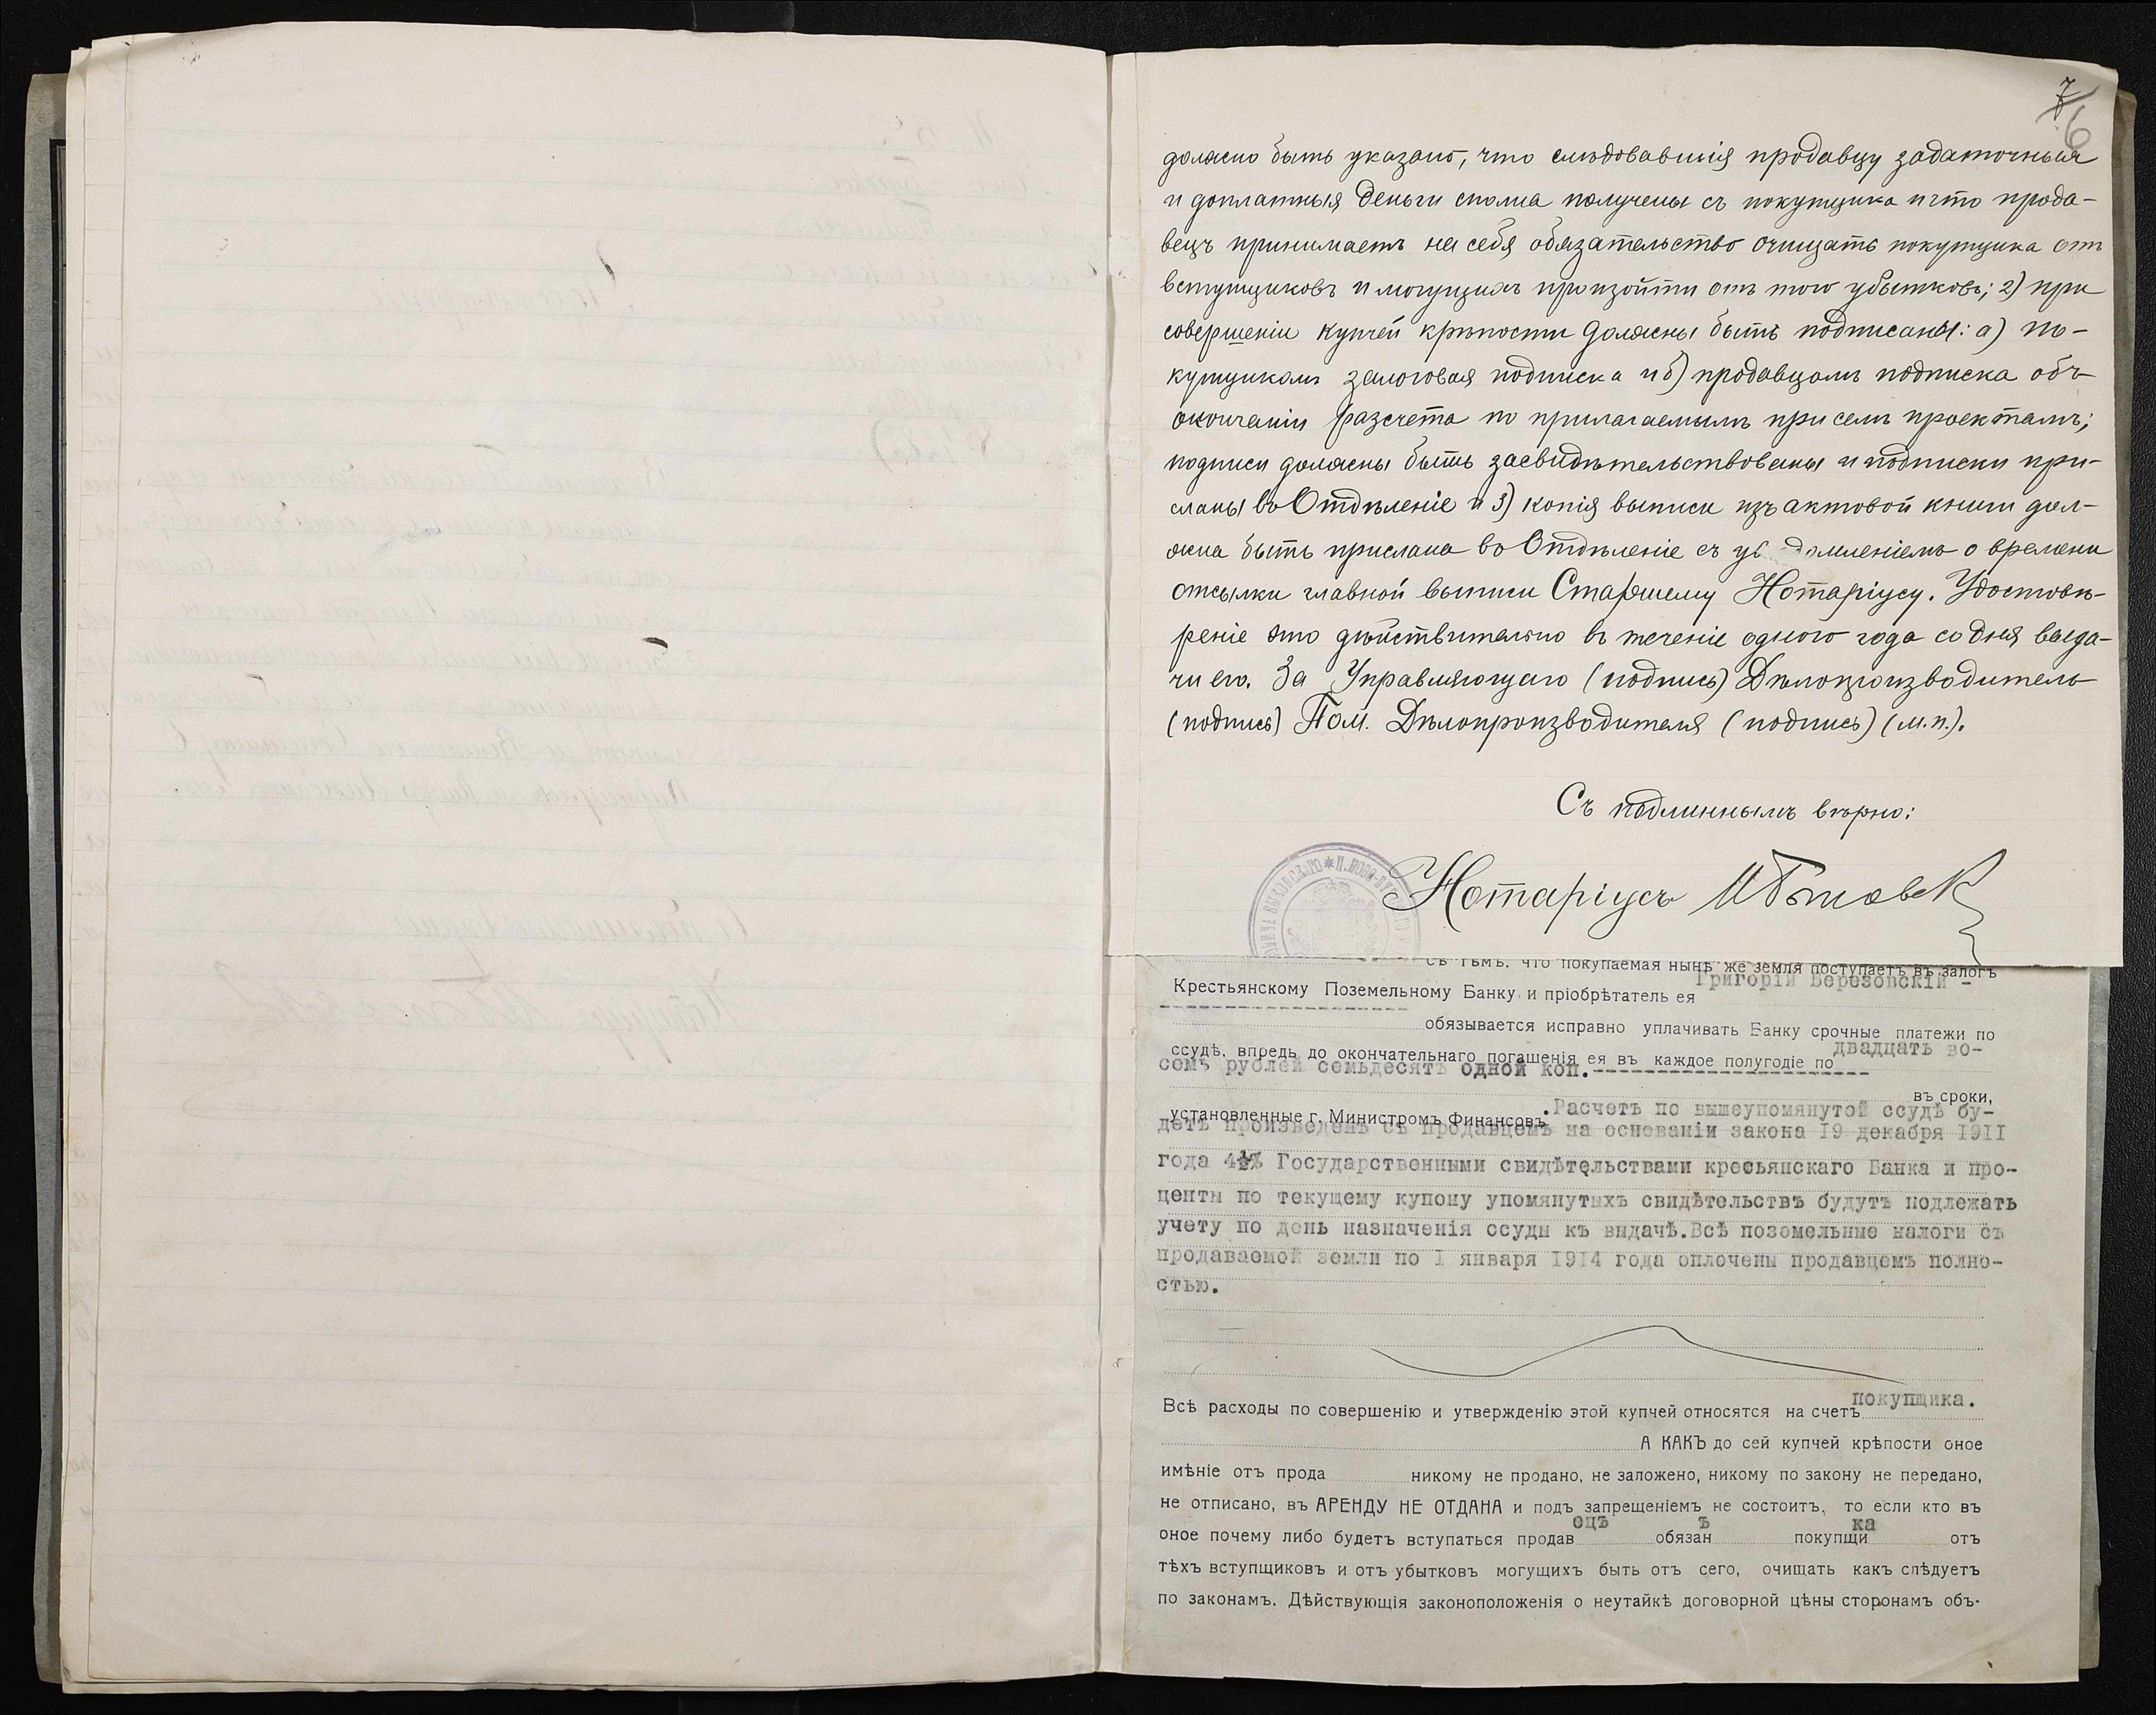 7
6
должно быть указано, что слѣдовавшія продавцу задаточныя
и доплатныя деньги сполна получены съ покупщика и что прода-
вецъ принимаетъ на себя обязательство очищать покупщика отъ
вступщиковъ и могущихъ произойти отъ того убытковъ; 2) при
совершеніи купчей крѣпости должны быть подписаны: а) по-
купщикомъ залоговая подписка и б) продавцомъ подписка объ
окончаніи разсчета по прилагаемымъ при семъ проектамъ;
подписи должны быть засвидѣтельствованы и подписки при-
сланы въ Отдѣленіе и 3) копія выписи изъ актовой книги дол-
жна быть прислана въ Отдѣленіе съ ув домленіемъ о времени
отсылки главной выписи Старшему Нотаріусу. Удостовѣ-
реніе это дѣйствительно въ теченіе одного года со дня выда-
чи его. За Управляющаго (подпись) Дѣлопроизводитель
(подпись) Пом. Дѣлопроизводителя (подпись) (м.п.).
Съ подлиннымъ вѣрно:
Нотаріусъ
съ тѣмъ, что покупаемая нынѣ же земля поступаетъ въ залогъ
Крестьянскому Поземельному Банку и пріобрѣтатель ея Григорій Березовскій -
обязывается исправно уплачивать Банку срочные платежи по
ссудѣ, впредь до окончательнаго погашенія ея въ каждое полугодіе по двадцать во-
семь рублей семьдесятъ одной коп.
въ сроки,
установленные г. Министромъ Финансовъ. Расчетъ по вышеупомянутой ссудѣ бу-
детъ произведенъ съ продавцемъ на основаніи закона 19 декабря 1911
года 4½% Государственными свидѣтельствами кресьянскаго Банка и про-
центы по текущему купону упомянутыхъ свидѣтельствъ будутъ подлежать
учету по день назначенія ссуды къ выдачѣ.Всѣ поземельные налоги съ
продаваемой земли по 1 января 1914 года оплочены продавцемъ полно-
стью.
Всѣ расходы по совершенію и утвержденію этой купчей относятся на счетъ покупщика.
А КАКЪ до сей купчей крѣпости оное
имѣніе отъ прода никому не продано, не заложено, никому по закону не передано,
не отписано, въ АРЕНДУ НЕ ОТДАНА и подъ запрещеніемъ не состоитъ, то если кто въ
оное почему либо будетъ вступаться продавецъ обязанъ покупщика отъ
тѣхъ вступщиковъ и отъ убытковъ могущихъ быть отъ сего, очищать какъ слѣдуетъ
по законамъ. Дѣйствующія законоположенія о неутайкѣ договорной цѣны сторонамъ объ-